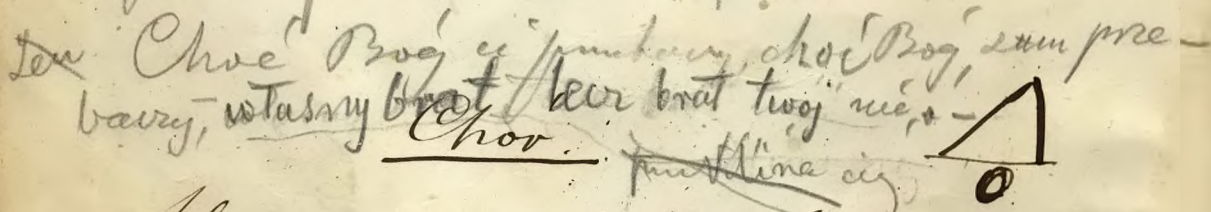 Choć Bóg ci przebaczy, choć Bóg sam prze-
baczy, własny brat lecz brat twój nie, -
Chor.
przeklina cię
0